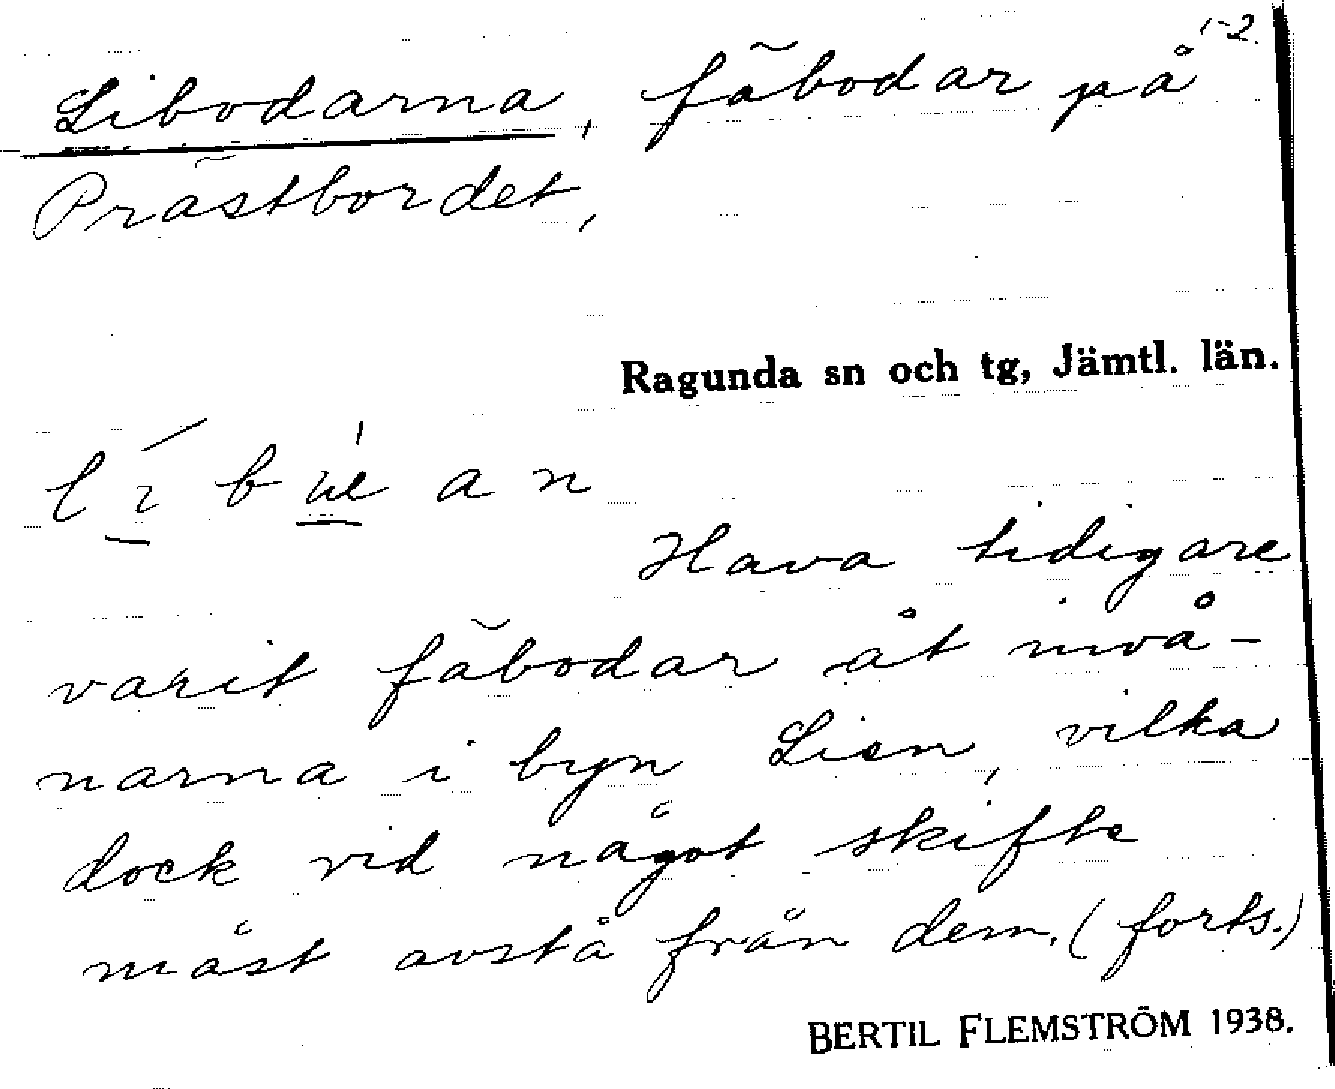 1-2.
Libodarna, fäbodar på
Prästbordet,
Ragunda sn och tg, Jämtl. län.
Hava tidigare
varit fäbodar åt invå-
narna i byn Lien, vilka
dock vid något skifte
måst avstå från dem. (forts.)
BERTIL FLEMSTRÖM 1938.